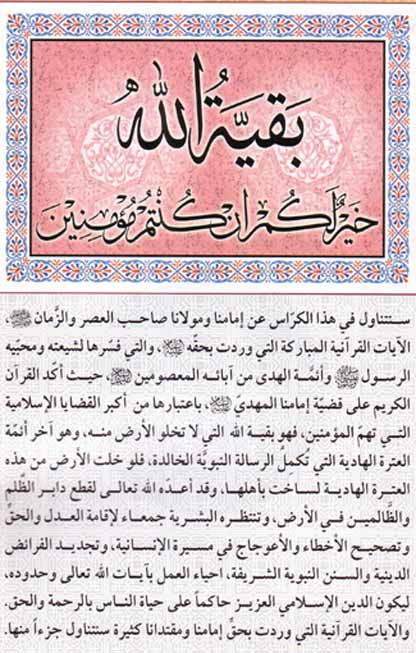 بقية الله
خير لكم ان كنتم مؤمنين
سنتناول في هذا الكرّاس عن إمامنا ومولانا صاحب العصر والزَّمان
الآيات القرآنية المباركة التي وردت بحقّه، والتي فسّرها لشيعته ومحبّيه
الرسول وأئمَّة الهدى من آبائه المعصومين حيث أكّد القرآن
الكريم على قضيّة إمامنا المهديّ، باعتبارها من أكبر القضايا الإسلامية
التي تهمّ المؤمنين، فهو بقية الله التي لا تخلو الأرض منه، وهو آخر أئمّة
العترة الهادية التي تُكملُ الرسالة النبويَّة الخالدة، فلو خلت الأرض من هذه
العترة الهادية لساخت بأهلها. وقد أعدّه الله تعالى لقطع دابر الظّلم
والظَّالمين في الأرض، وتنتظره البشرية جمعاء لإقامة العدل والحقِّ
وتصحيح الأخطاء والأعوجاج في مسيرة الإنسانية، وتجديد الفرائض
الدينية والسنن النبوية الشريفة، احياء العمل بآيات الله تعالى وحدوده،
ليكون الدين الإسلامي العزيز حاكماً على حياة الناس بالرحمة والحق.
والآيات القرآنية التي وردت بحقِّ إمامنا ومقتدانا كثيرة سنتناول جزءاً منها.